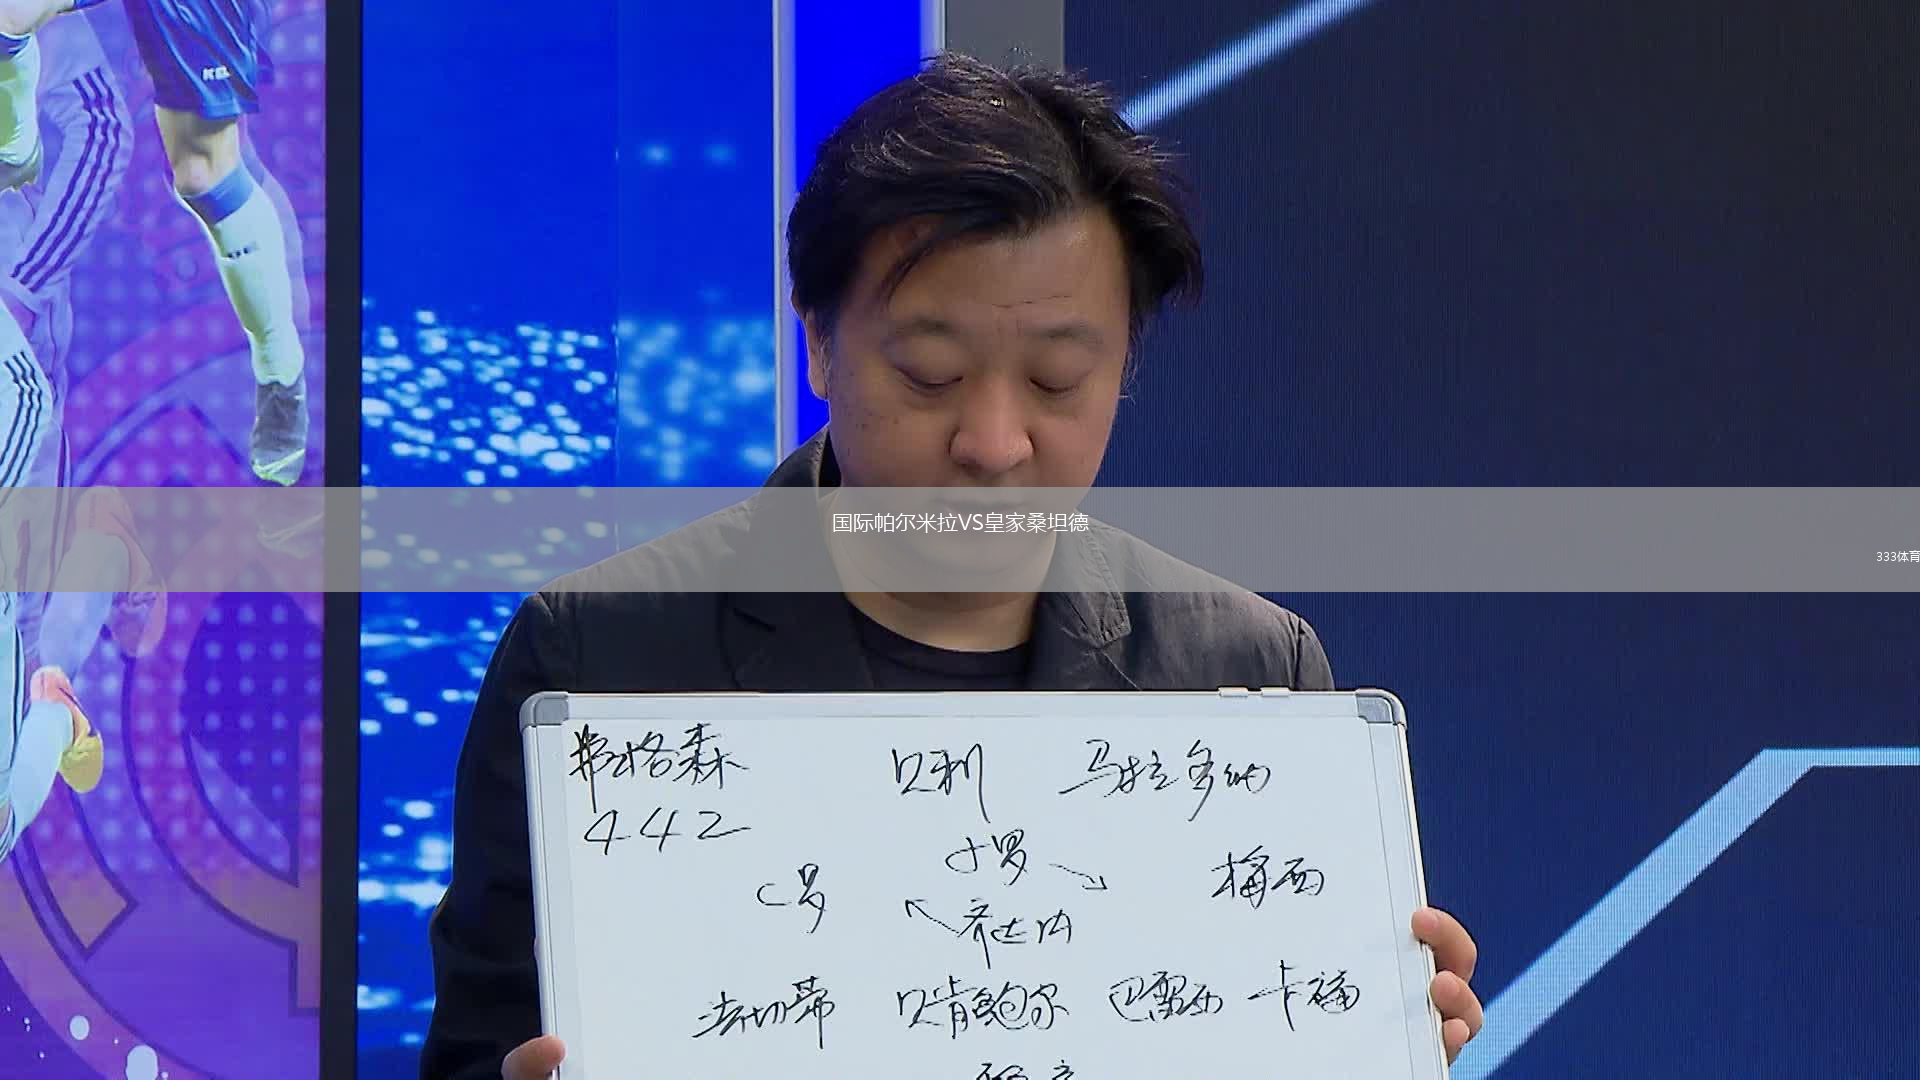 国际帕尔米拉VS皇家桑坦德
333体育
弗格森 贝利 马拉多纳
442
小罗
C罗 梅西
齐达内
法切蒂 贝肯鲍尔 巴雷西 卡福